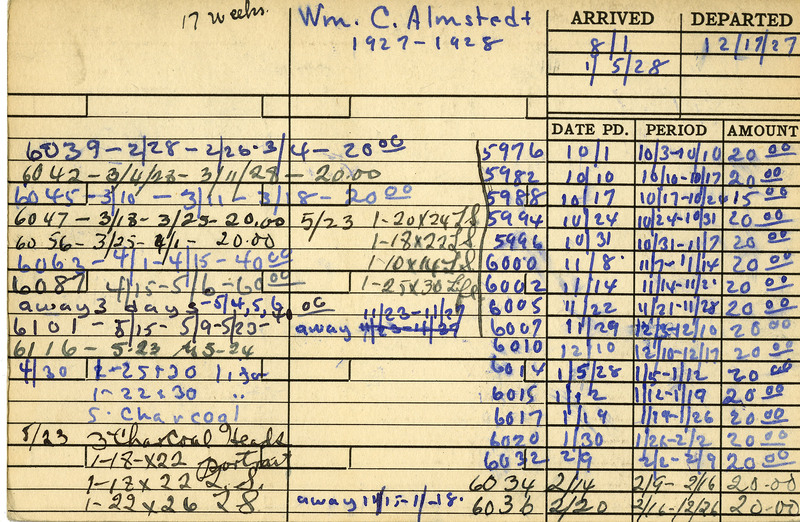 17 Weeks.
Wm. C. Almstedt
1927-1928
ARRIVED DEPARTED
8/1 12/17/27
1/5/28
DATE PD. PERIOD AMOUNT
6039-2/28-2/26-3/4-20.00 5976 10/1 10/3-10/10 20.00
6042-3/4/28-3/11/28-20.00 5982 10/10 10/10-10/17 20.00
6045-3/10-3/11-3/18-20.00 5988 10/17 10/17-10/24 15.00
6047-3/18-3/25-20.00 5/23 1-20x24 LS 5994 10/24 10/24-10/31 20.00
6056-3/25-4/1-20.00 1-18x22 LS 5996 10/31 10/31-11/7 20.00
6062-4/1-4/15-40.00 1-10x14 LS 6000 11/8 11/7-11/14 20.00
6087 4/15-5/6-60.00 1-25x30 6002 11/14 11/14-11/21 20.00
away 3 days-5/4,5,6 11/23-11/27 6005 11/22 11/21-11/28 20.00
6101-5/15-5/9-5/23- away 6007 11/29 20.00
6116-5-23 5-24 6010 12/10 12/10-12/17 20.00
4/30 2-25x30 6014 1/5/28 1/5-1/12 20.00
1-22x30 " 6015 1/12 1/12-1/19 20.00
5-Charcoal 6017 1/19 1/19-1/26 20.00
5/23 3-Charcoal Heads 6020 1/30 1/26-2/2 20.00
1-18-x22 Portrait 6032 2/9 2/2-2/9 20.00
1-18x22 L.S. 6034 2/14 2/9-2/16 20.00
1-22x26 LS away 11/15-1/-18. 6036 2/20 2/16-2/26 20.00